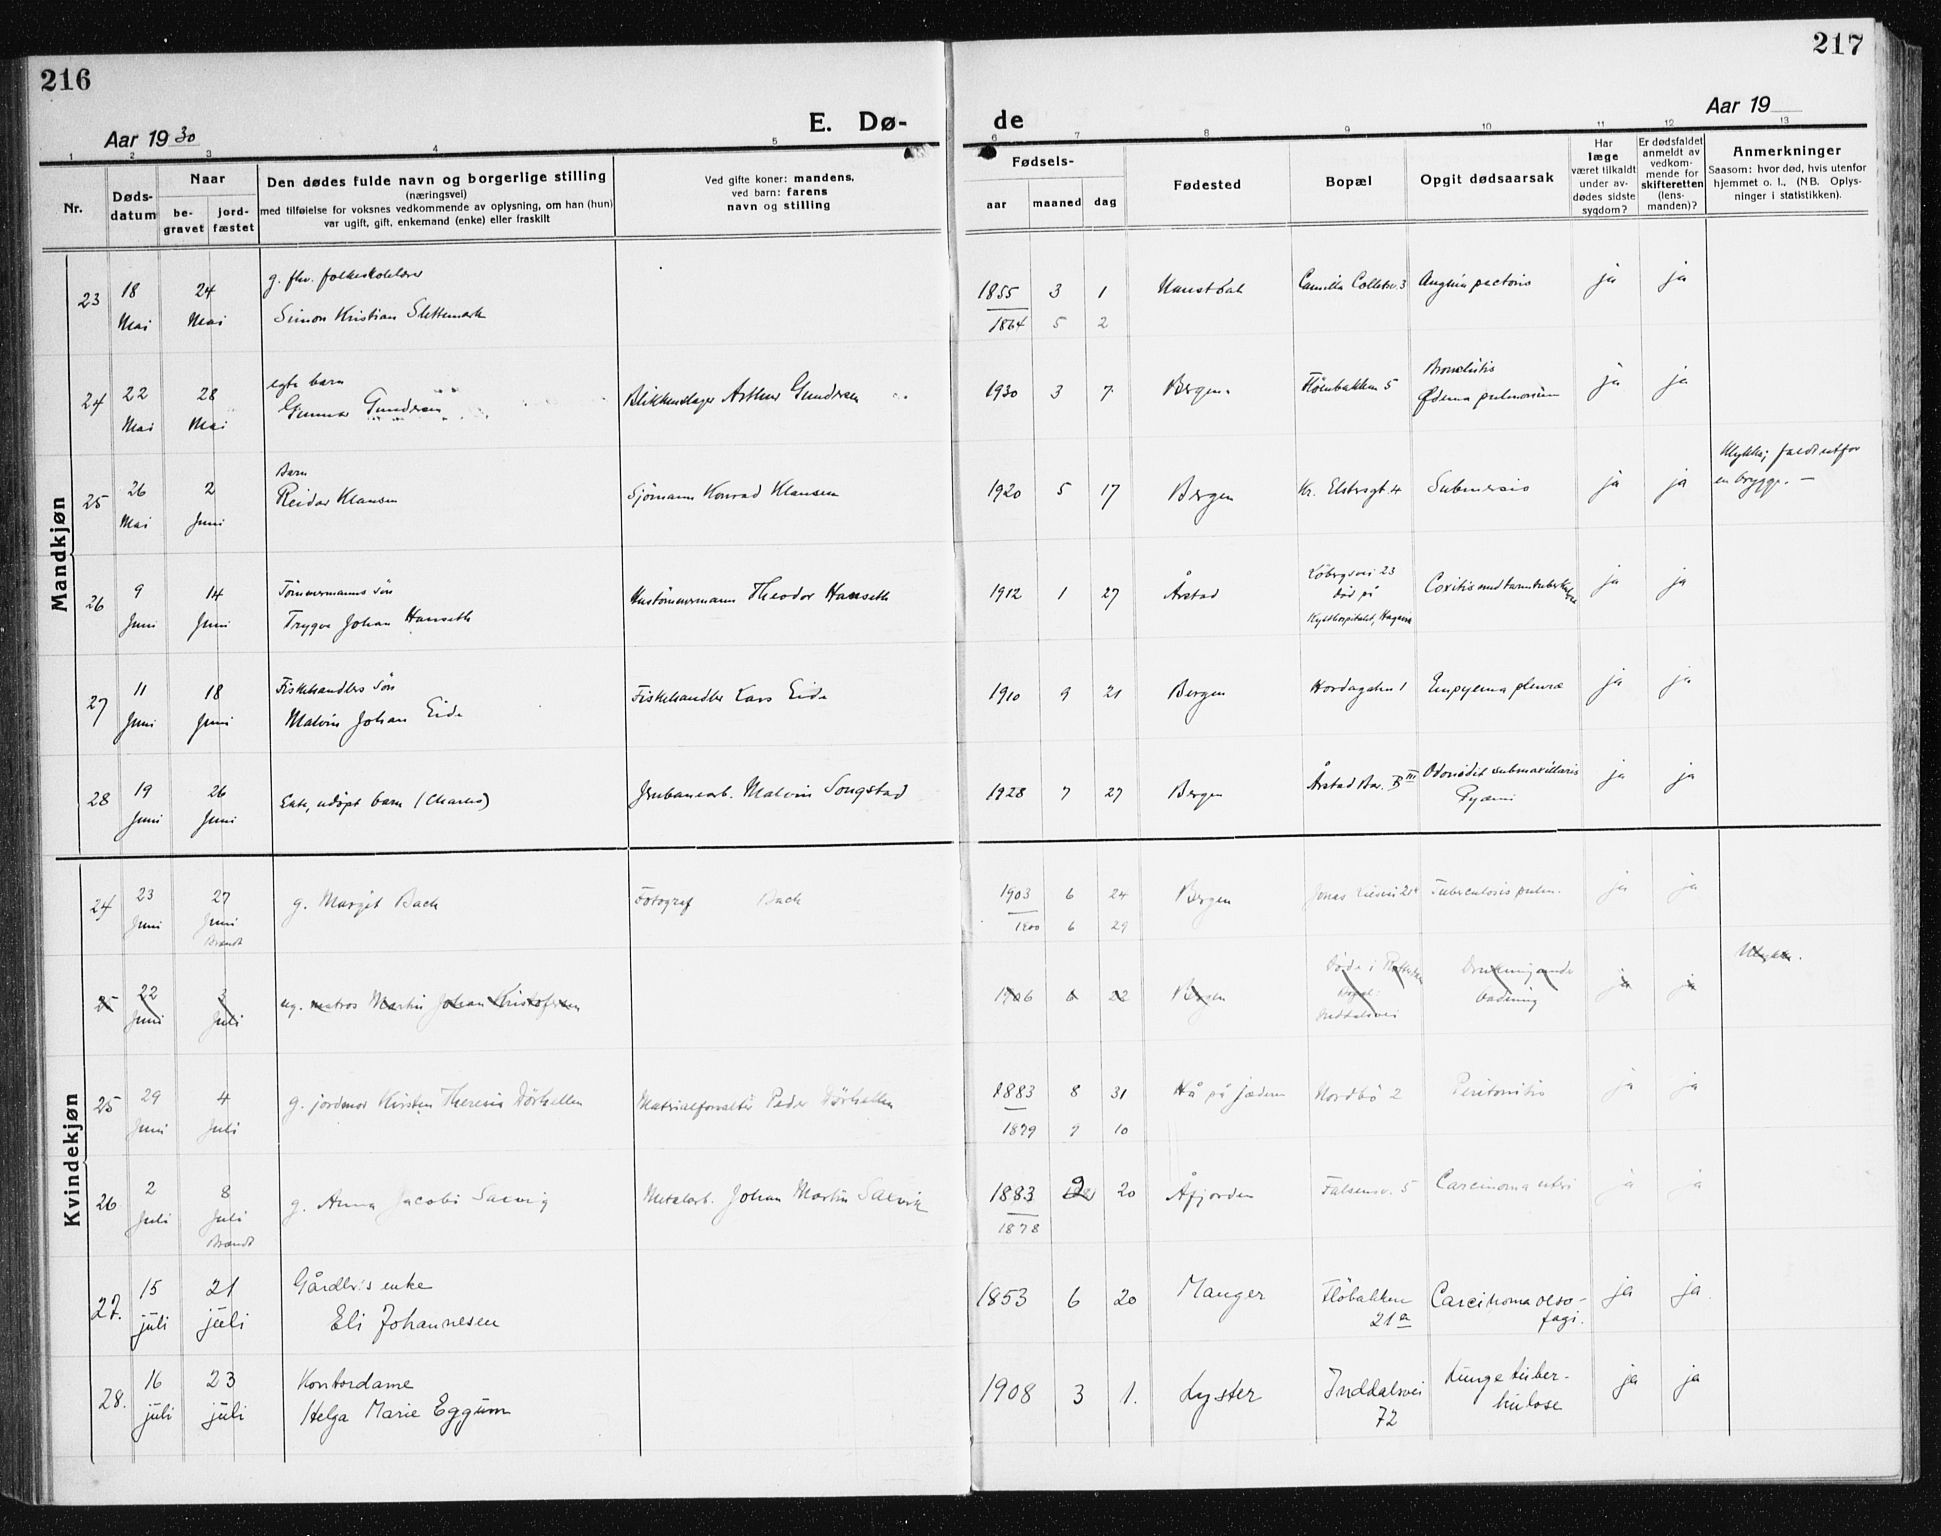 216
217
E. Dø-
de
Aar 1930
Aar 19
1 2 3 4 5 6 7 8 9 10 11 12 13
Nr.
Døds-
datum
Naar
be-
gravet
jord-
fæstet
Den dødes fulde navn og borgerlige stilling
(næringsvei)
med tilføielse for voksnes vedkommende av oplysning, om han (hun)
var ugift, gift, enkemand (enke) eller fraskilt
Ved gifte koner: mandens,
ved barn: farens
navn og stilling
Fødsels-
aar maaned dag
Fødested
Bopæl
Opgit dødsaarsak
Har
læge
været tilkaldt
under av-
dødes sidste
sygdom?
Er dødsfaldet
anmeldt av
vedkom-
mende for
skifteretten
(lens-
manden)?
Anmerkninger
Saasom: hvor død, hvis utenfor
hjemmet o. l., (NB. Oplys-
ninger i statistikken).
Mandkjøn
23 18 Mai 24 Mai
g. fhv. folkeskolelærer
Simon Kristian Slettemark
1855 3 1
1864 5 2
Camilla Colletsv. 3 Angina pectoris ja ja
24 22 Mai 28 Mai
egte barn
Gunnar Gundersen
Blikkenslager Arthur Gundersen
1930 3 7 Bergen Flöenbakken 5
Bronchitis
Ødema pulmonum ja ja
25 26 Mai 2 Juni
Barn
Reidar Klausen
Sjömann Konrad Klausen
1920 5 17 Bergen Kr. Elstersgt. 4 Submersio ja ja
Ulykke; faldt utfor
en brygge. —
26 9 Juni 14 Juni
Tömmermanns sön
Trygve Johan Hanseth
Hustömmermann Theodor Hanseth
1912 1 27 Årstad
Löbergsvei 23
död på
Kysthospitalet, Hagavik
Coxitis med tarmtuberkulose ja ja
27 11 Juni 18 Juni
Fiskehandlers sön
Malvin Johan Eide
Fiskehandler Lars Eide
1910 9 21 Bergen Hordagaten 1 Empyema pleuræ ja ja
28 19 Juni 26 Juni
Ekte, udöpt barn (Charles)
Jernbanearb. Malvin Songstad
1928 7 27 Bergen Årstad Bar. B III
submaxillaris
Pyæmi ja ja
Kvindekjøn
24 23 Juni 27 Juni
Brændt
g. Margit Bach
Fotograf Bach
1903 6 24
1900 6 29
Bergen Jonas Liesvei Tuberculosis pulm. ja ja
25 22 Juni 3 Juli
ug. matros Martin Johan Kristofersen
1906 6 22 Bergen
Döde i Rotterdam
Bopæl:
Inddalsvei
Drukning under
badning ja ja
Ulykke.
25 29 Juni 4 Juli
g. jordmor Kirsten Theresia
Materialforvalter Peder
1883 8 31
1879 7 10
Hå på Jæderen Nordbö 2 Peritonitis ja ja
26 2 Juli 8 Juli
Brændt
g. Anna Jacobi Sacvig
Metalarb. Johan Martin Sacvik
1883 2 20
1878
Åfjorden Falsensv. 5 Carcinoma uteri ja ja
27. 15 juli 21 juli
Gårdbr.s enke
Eli Johannesen
1853 6 20 Manger
Flöbakken
21a
Carcinoma oeso-
fagi. ja ja.
28. 16 juli 23 juli
Kontordame
Helga Marie Eggum
1908 3 1. Lyster
Inddalsvei
72
Lungetuber-
kulose ja ja